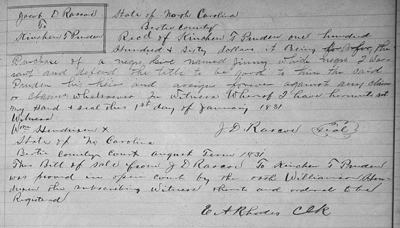 Jacob D Rascoe State of North Carolina
To Bertie County
Kinchen T Pruden Recd of Kinchen T Pruden one hundred
Hundred & Sixty dollars it being for the
Purchase of a negro girl named Jinny which negro I war-
rant and defend the title to be good to him the said
Pruden his heirs and assigns forever against any claim
or claims whatsoever In Witness Whereof I have hereunto set
my Hand & seal this 1st day of January 1831
Witness
Wm Henderson x J D Rascoe Seal
State of No Carolina
Bertie County Court August Term 1831
This Bill of sale from J D Rascoe To Kinchen T Pruden
was proved in open Court by the oath William
the subscribing Witness thereto and ordered to be
Registered
E A Rhodes Clk